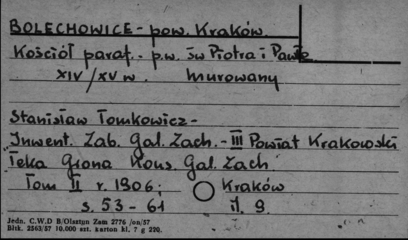 BOLECHOWICE - pow. Kraków
Kościół paraf. - p.w. św Piotra i Pawła
XIV/XV w. murowany
Stanisław Tomkowicz -
"Inwent. Zab. Gal. Zach. - III Powiat Krakowski
Teka Grona Kons. Gal. Zach
Tom II r. 1906; Kraków
s. 53 - 61 il. 9.
Jedn. C.W.D B/Olsztyn Zam 2776 /on/57
Bltk. 2563/57 10.000 szt. karton kl. 7 g 220.